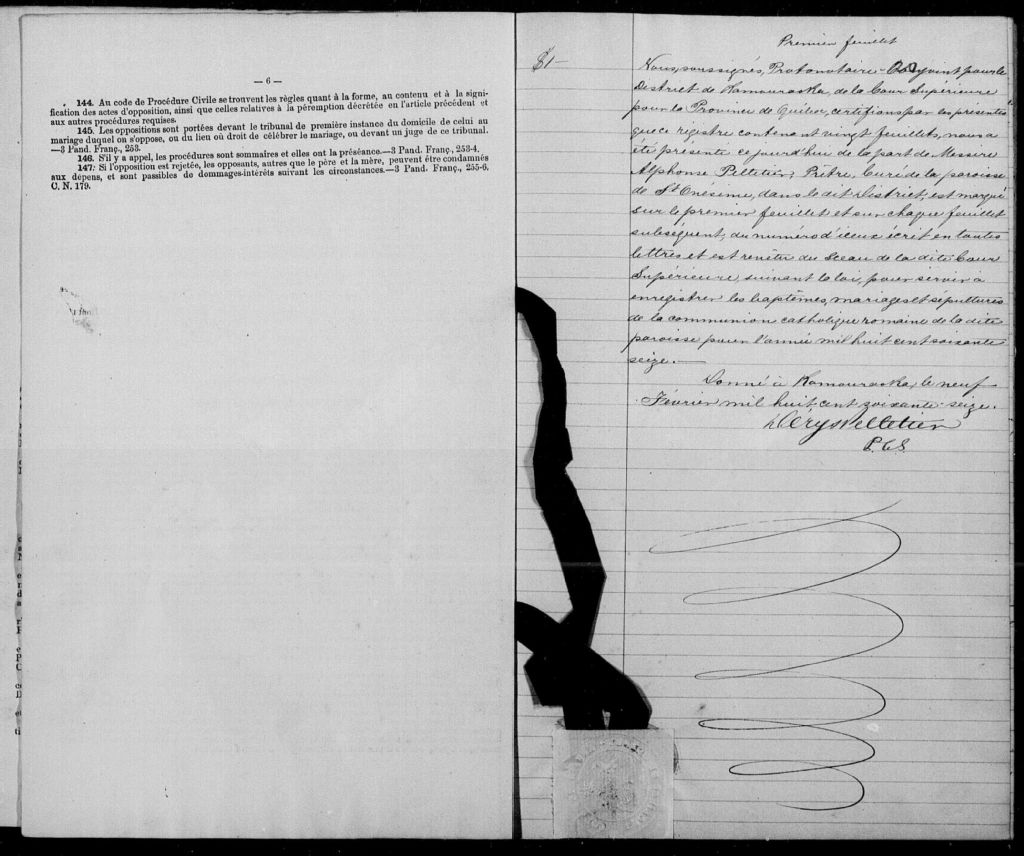 — 6 —
144. Au code de Procédure Civile se trouvent les règles quant à la forme, au contenu et à la signi-
fication des actes d'opposition, ainsi que celles relatives à la péremption décrétée en l'article précédent et
aux autres procédures requises.
145. Les oppositions sont portées devant le tribunal de première instance du domicile de celui au
mariage duquel on s'oppose, ou du lieu où droit de célébrer le mariage, ou devant un juge de ce tribunal.
—3 Pand. Franç., 253.
146. S'il y a appel, les procédures sont sommaires et elles ont la préséance.—3 Pand. Franç., 253-4.
147. Si l'opposition est rejetée, les opposants, autres que le père et la mère, peuvent être condamnés
aux dépens, et sont passibles de dommages-intérêts suivant les circonstances.—3 Pand. Franç., 255-6.
C. N. 179.
Premier feuillet
$1—
Nous, soussignés, Protonotaire-Conjoint pour le
District de Kamouraska, de la Cour Supérieure
pour la Province de Québec, certifions par les présentes
que ce régistre contenant vingt feuillets, nous a
été présenté ce jourd'hui de la part de Messire
Alphonse Pelletier, Prêtre, Curé de la paroisse
de St Onésime, dans le dit District, est marqué
sur le premier feuillet et sur chaque feuillet
subséquent, du numéro d'iceux écrit en toutes
lettres et est revêtu du Sceau de la dite Cour
Supérieure, suivant la loi, pour servir à
enregistrer les baptêmes, mariages et sépultures
de la communion catholique romaine de la dite
paroisse pour l'année mil huit cent soixante
seize.—
Donné à Kamouraska, le neuf
Février mil huit cent soixante-seize.
Pelletier
P. C. S.